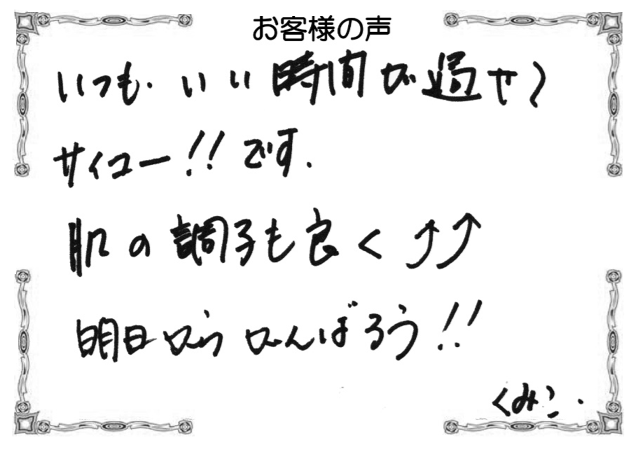 お客様の声
いつも、いい時間が過せて
サイコー!!です.
肌の調子も良く⤴⤴
明日からがんばろう!!
くみこ.